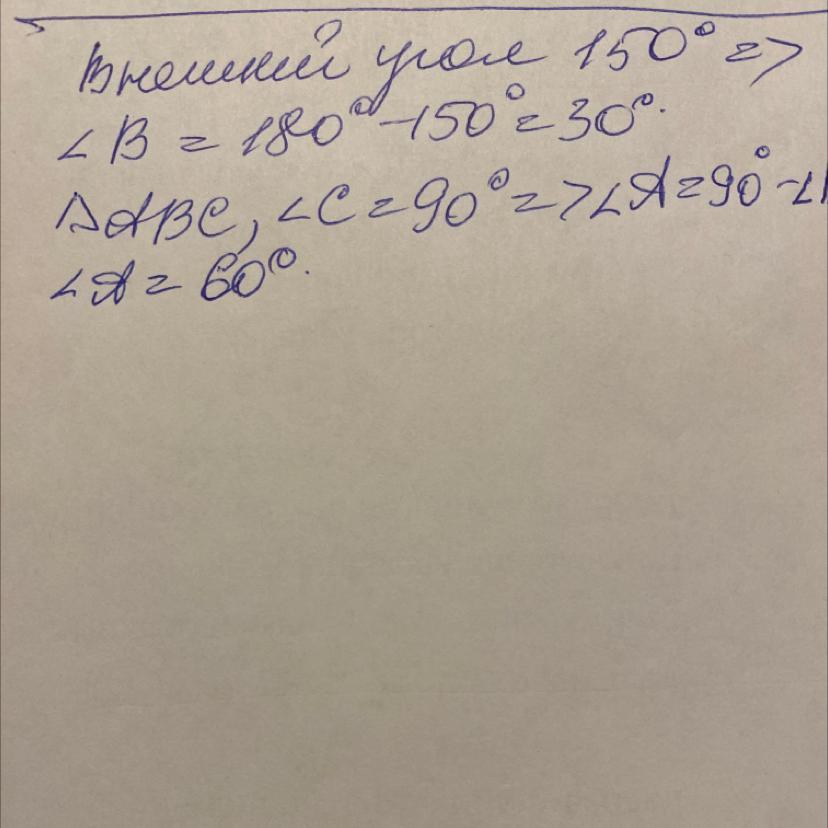 Внешний угол 150° =>
∠B = 180° - 150° = 30°.
△ABC, ∠C = 90° => ∠A = 90° - ∠
∠A = 60°.